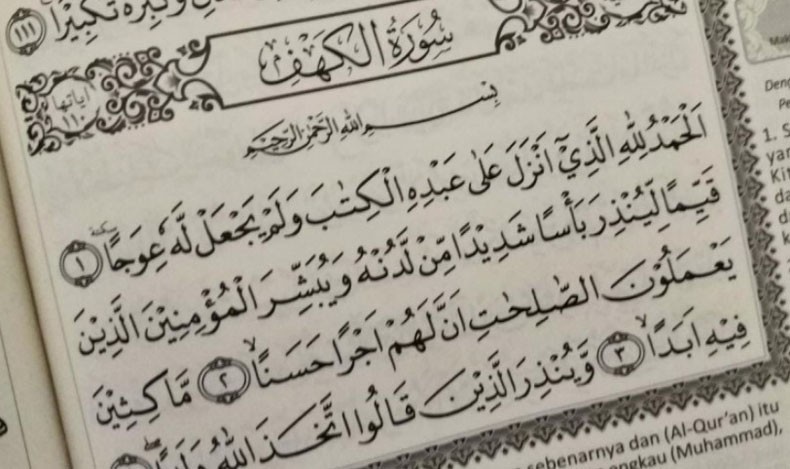 وَكَبِّرْهُ تَكْبِيْرًا ࣖ ١١١
سُوْرَةُ الْكَهْفِ
اٰيَاتُهَا ١١٠
بِسْمِ اللّٰهِ الرَّحْمٰنِ الرَّحِيْمِ
اَلْحَمْدُ لِلّٰهِ الَّذِيْٓ اَنْزَلَ عَلٰى عَبْدِهِ الْكِتٰبَ وَلَمْ يَجْعَلْ لَّهٗ عِوَجًا ١
قَيِّمًا لِّيُنْذِرَ بَأْسًا شَدِيْدًا مِّنْ لَّدُنْهُ وَيُبَشِّرَ الْمُؤْمِنِيْنَ الَّذِيْنَ
يَعْمَلُوْنَ الصّٰلِحٰتِ اَنَّ لَهُمْ اَجْرًا حَسَنًاۙ ٢ مَّا كِثِيْنَ
فِيْهِ اَبَدًاۙ ٣ وَّيُنْذِرَ الَّذِيْنَ قَالُوا اتَّخَذَ اللّٰهُ وَلَدًا
1. S
sebenarnya dan (Al-Qur'an) itu
engkau (Muhammad),